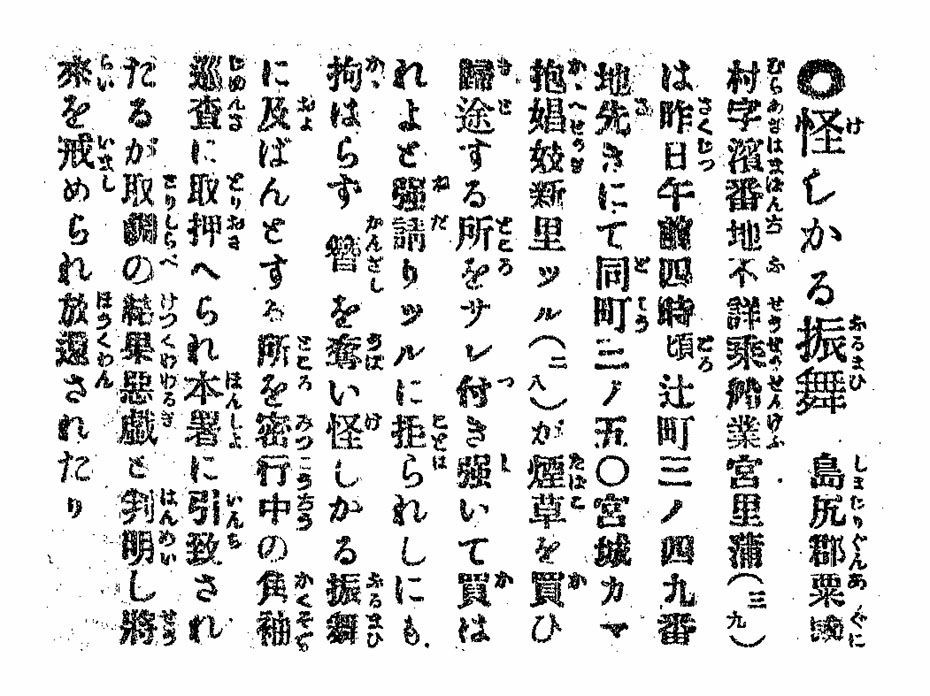 ◎怪しかる振舞 島尻郡粟國
村字濱番地不詳乘船業宮里蒲(三九)
は昨日午前四時頃辻町三ノ四九番
地先きにて同町三ノ五〇宮城カマ
抱娼妓新里ツル(二八)が煙草を買ひ
歸途する所をサレ付き强いて買は
れよと强請りツルに拒られしにも
拘はらず簪を奪い怪しかる振舞
に及ばんとする所を密行中の角袖
巡査に取押へられ本署に引致され
たるが取調の結果惡戯と判明し將
來を戒められ放還されたり